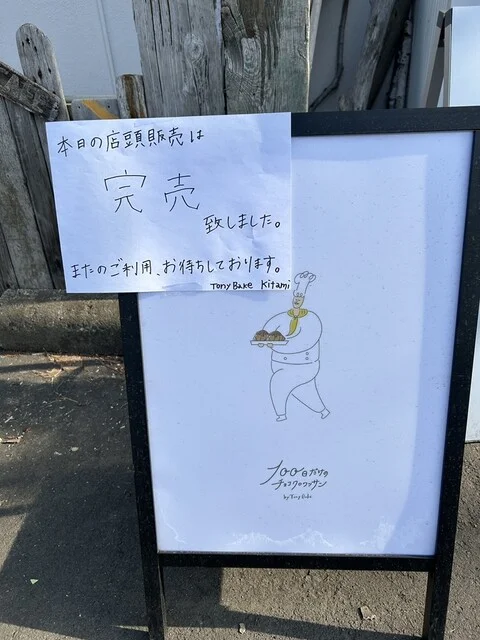 本日の店頭販売は
完売
致しました。
またのご利用、お待ちしております。
Tony Bake Kitami
100日だけの
チョコクロワッサン
by Tony Bake